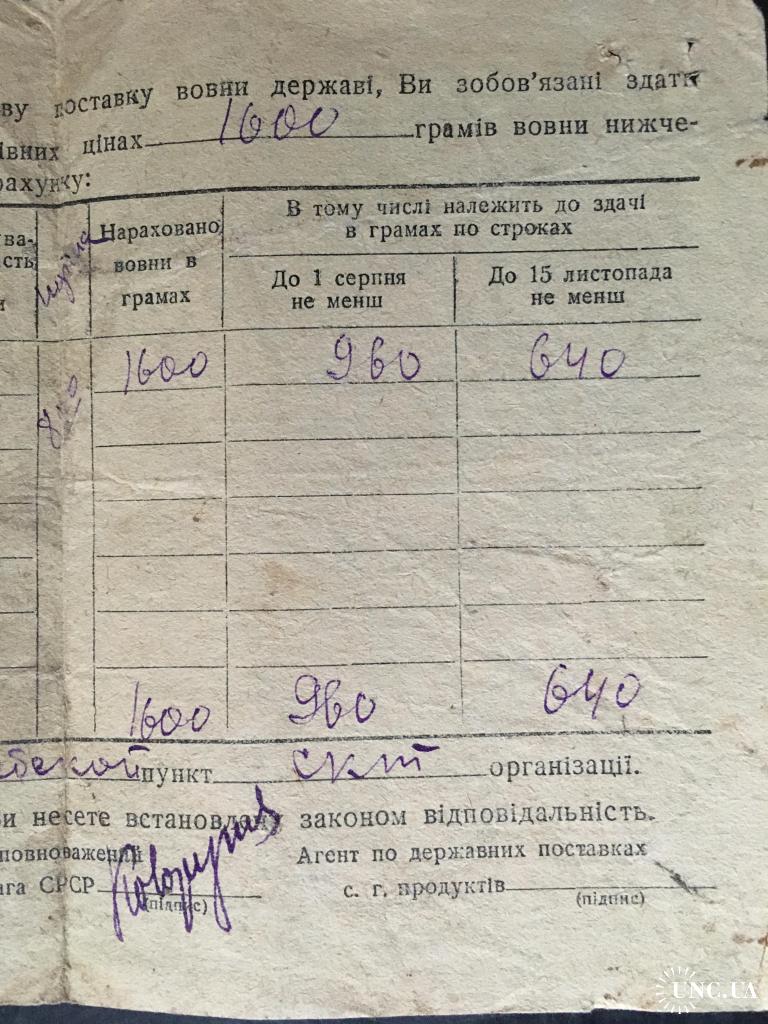 ву поставку вовни державі, Ви зобов'язані здати
івних цінах 1600 грамів вовни нижче-
рахунку:
Нараховано вовни в грамах
В тому числі належить до здачі в грамах по строках
До 1 серпня не менш
До 15 листопада не менш
1600 960 640
1600 960 640
пункт скт організації.
и несете встановлену законом відповідальність.
повноважений
Агент по державних поставках
ага СРСР
(підпис)
с. г. продуктів
(підпис)
UNC.UA